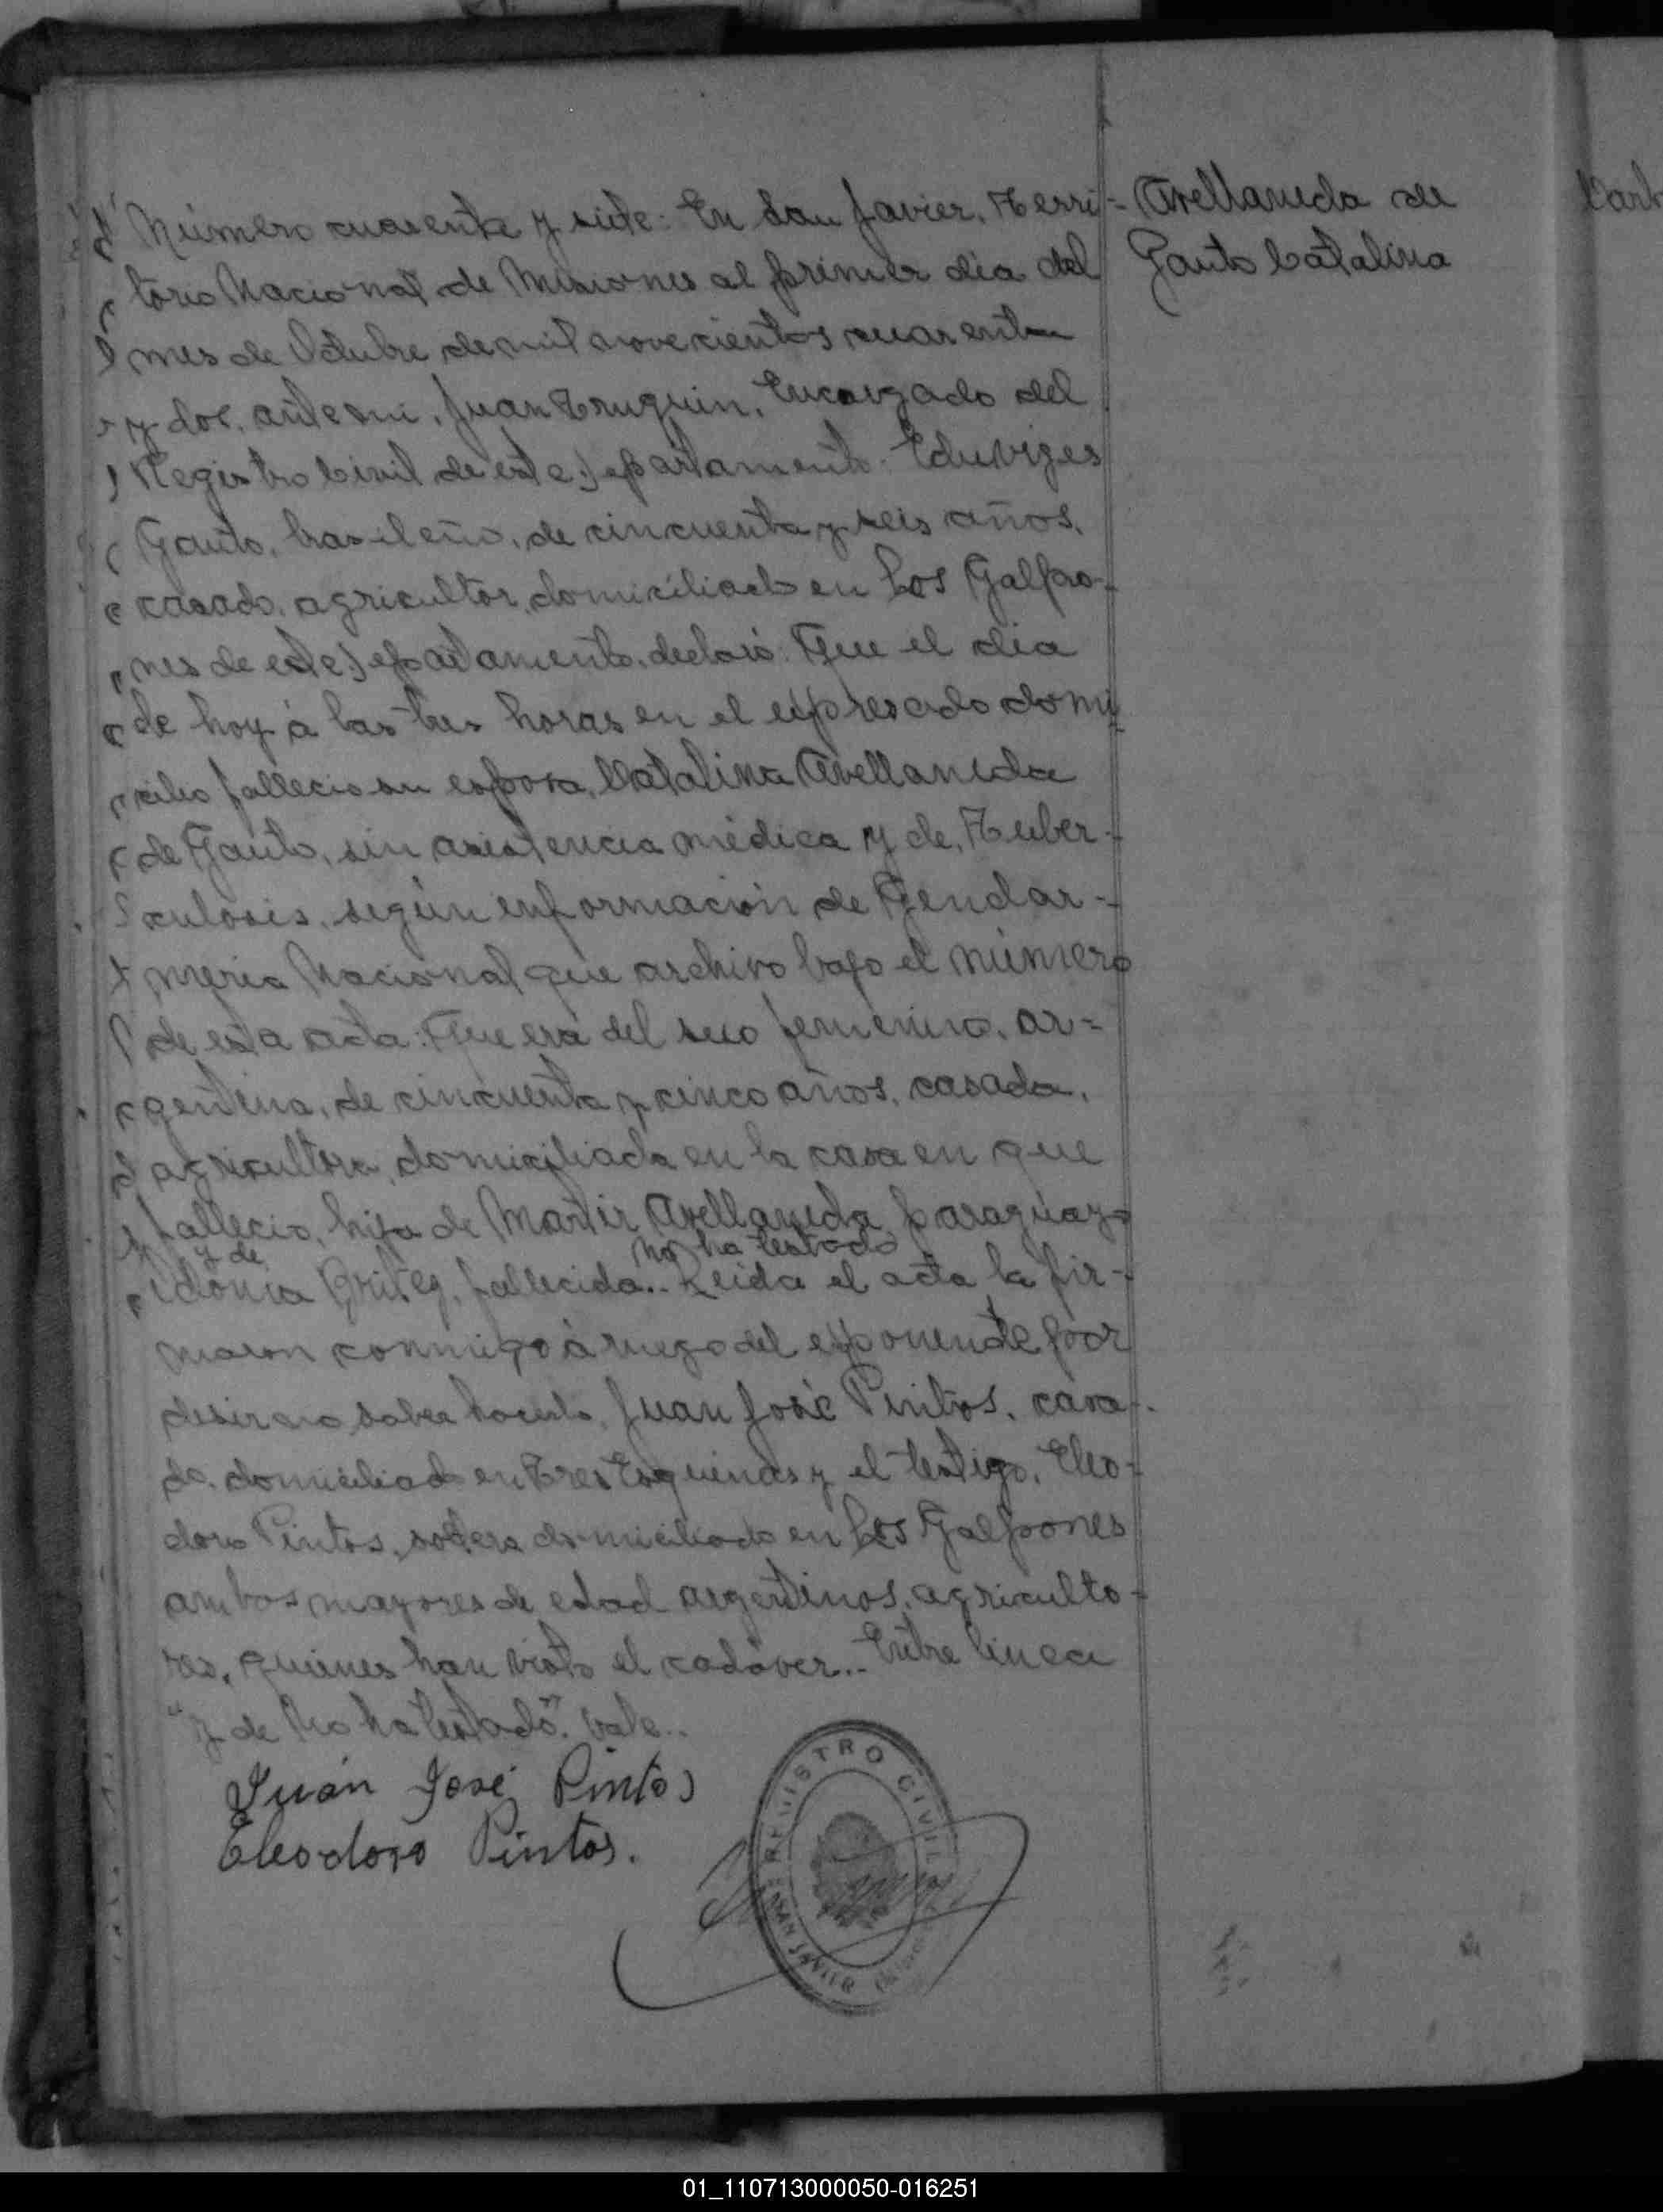 Avellaneda de
Gauto Catalina
Número cuarenta y siete: En San Javier, Terri-
torio Nacional de Misiones al primer día del
mes de Octubre de mil novecientos cuarenta
y dos, ante mi, Juan Truquin, Encargado del
Registro Civil de este Departamento: Eduviges
Gauto, brasileño, de cincuenta y seis años,
casado, agricultor, domiciliado en Los Galpo-
nes de este Departamento, declaró: Que el día
de hoy á las tres horas en el expresado domi-
cilio fallecio su esposa, Catalina Avellaneda
de Gauto, sin asistencia médica y de, Tuber-
culosis, según información de Gendar-
meria Nacional que archivo bajo el número
de esta acta: Que era del sexo femenino, ar-
gentina, de cincuenta y cinco años, casada,
agricultora, domiciliada en la casa en que
fallecio, hija de Martir Avellaneda, paraguayo
y de no ha testado
fallecida.. Leida el acta la fir-
maron conmigo á ruego del exponente por
desir no saber hacerlo, Juan José Pintos, casa-
do, domiciliado en Tres Esquinas y el testigo, Eleo-
doro Pintos, soltero domiciliado en Los Galpones
ambos mayores de edad argentinos, agriculto-
res, quienes han visto el cadáver.. Entre linea
"y de No ha testado". Vale..
Juán José Pintos
Eleodoro Pintos.
REGISTRO CIVIL
SAN JAVIER
01_110713000050-016251